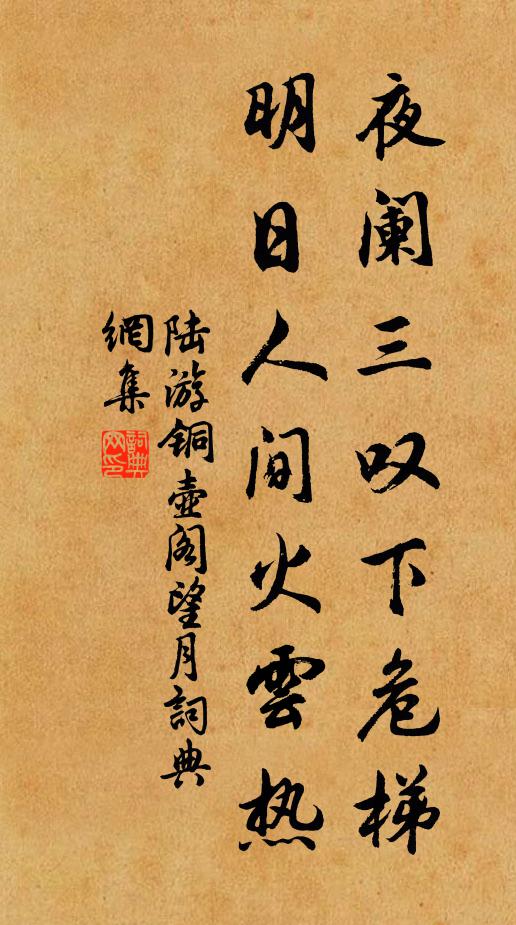 夜阑三叹下危梯
明日人间火雲热
陆游铜壶阁望月詞典
網集
詞典
网印